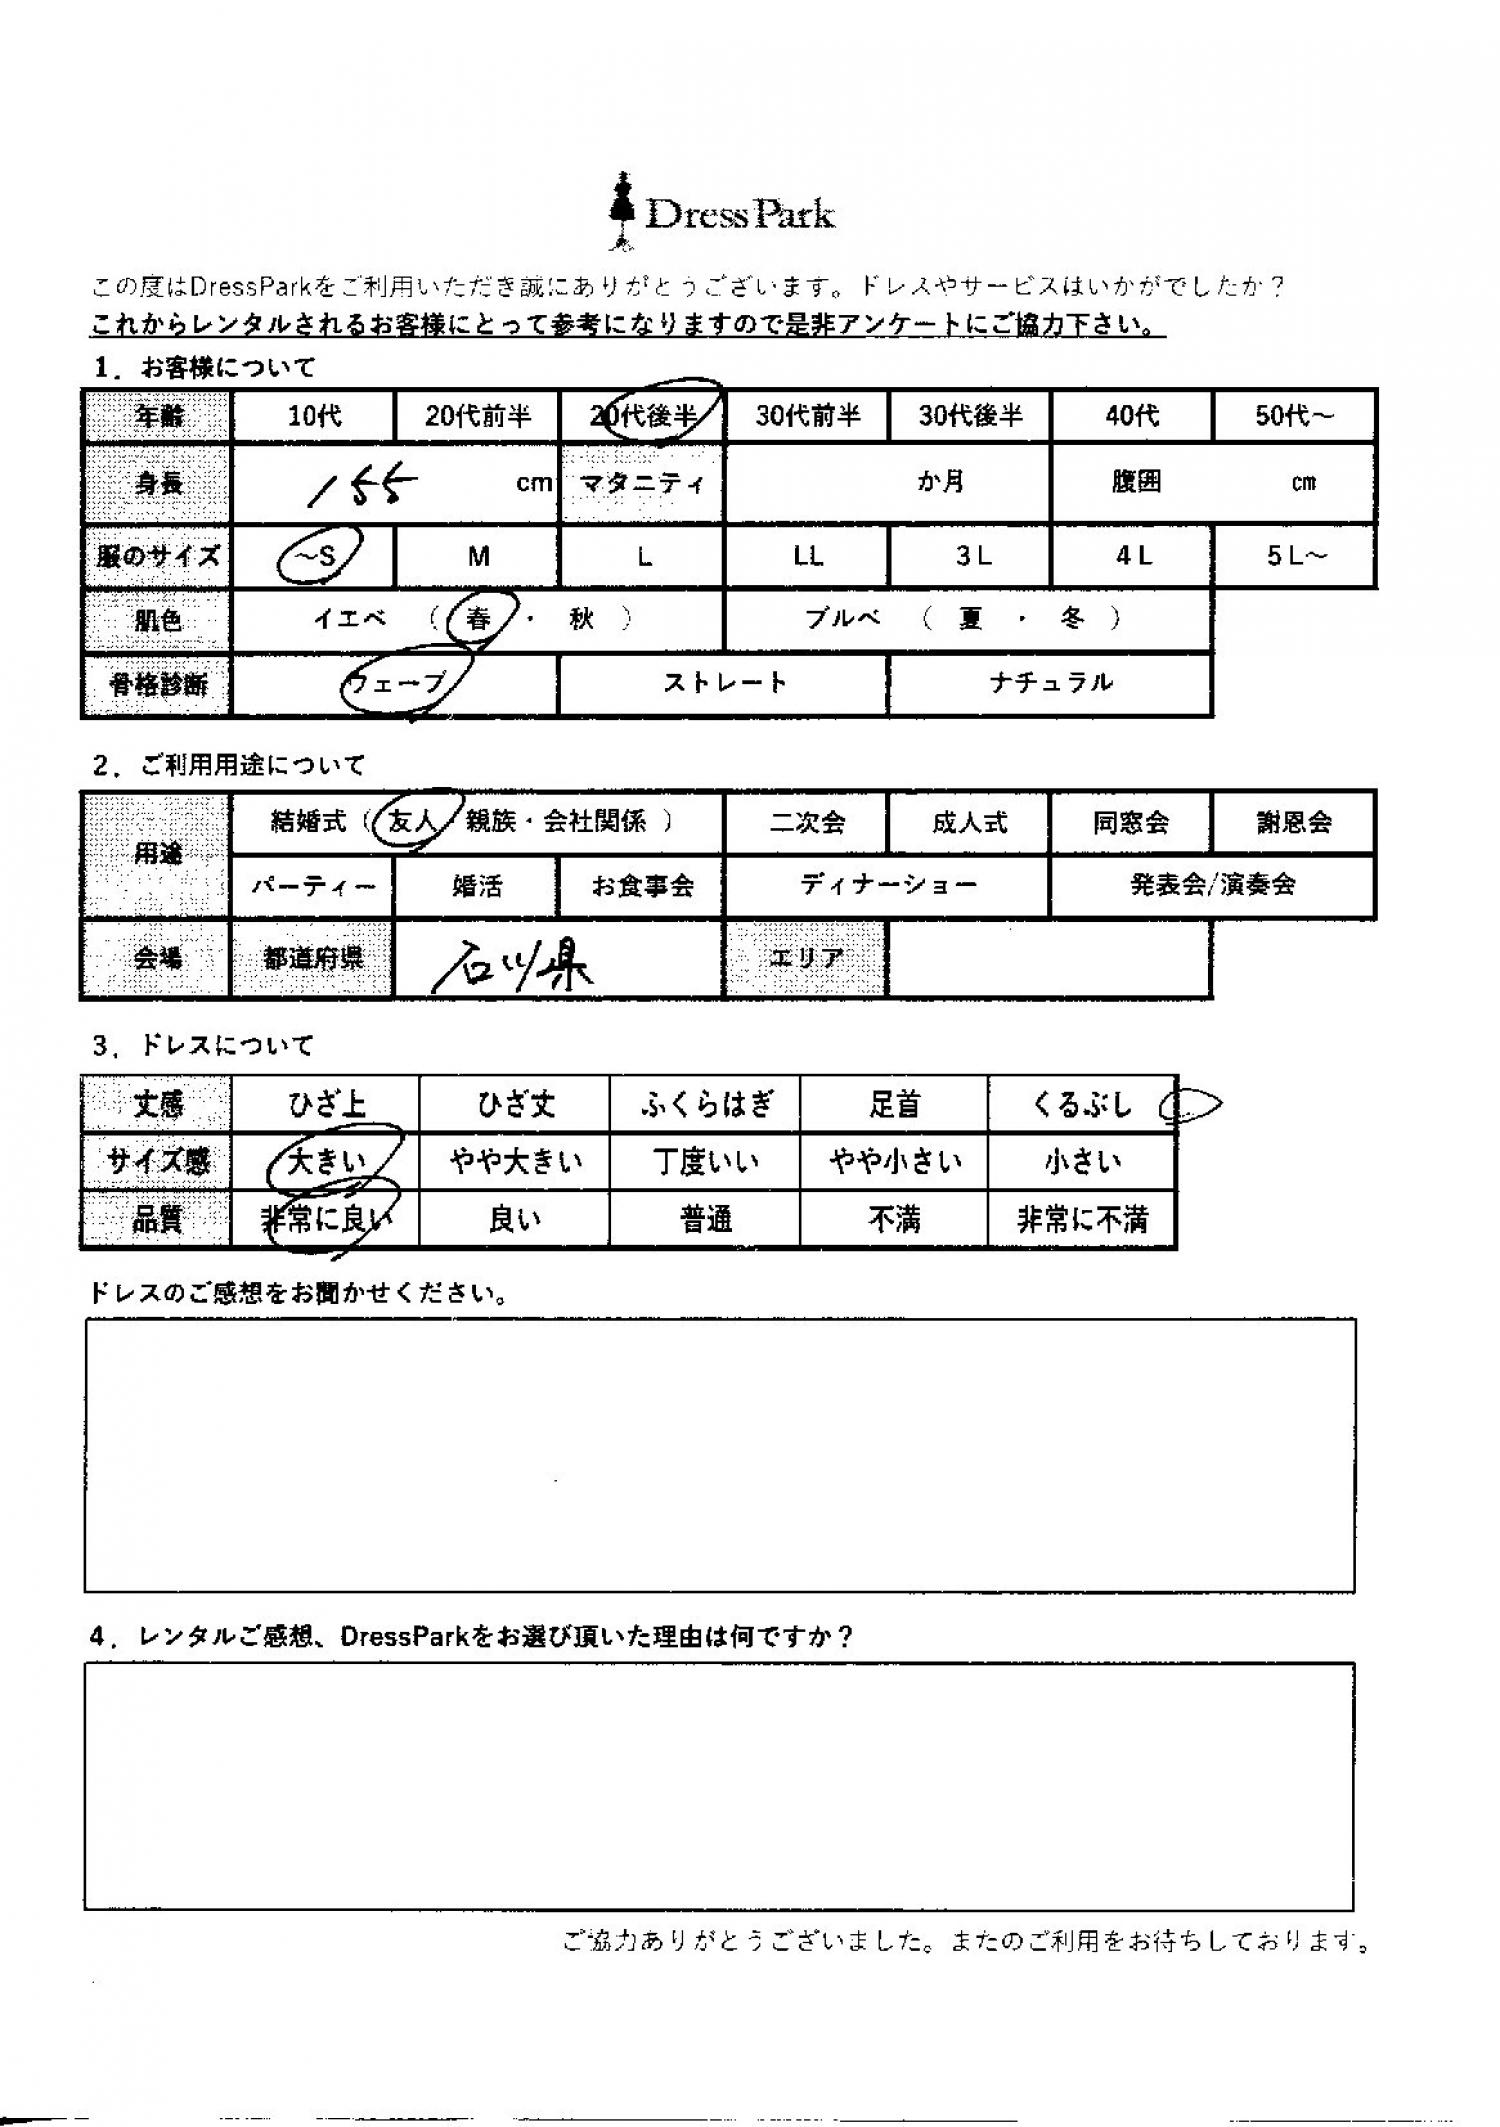 DressPark
この度はDressParkをご利用いただき誠にありがとうございます。ドレスやサービスはいかがでしたか？
これからレンタルされるお客様にとって参考になりますので是非アンケートにご協力下さい。
1．お客様について
年齢 10代 20代前半 20代後半 30代前半 30代後半 40代 50代～
身長 155 cm マタニティ か月 腹囲 cm
服のサイズ ～S M L LL 3L 4L 5L～
肌色 イエベ （ 春 ・ 秋 ） ブルベ （ 夏 ・ 冬 ）
骨格診断 ウェーブ ストレート ナチュラル
2．ご利用用途について
用途 結婚式（ 友人 親族・会社関係 ） 二次会 成人式 同窓会 謝恩会
パーティー 婚活 お食事会 ディナーショー 発表会/演奏会
会場 都道府県 石川県 エリア
3．ドレスについて
丈感 ひざ上 ひざ丈 ふくらはぎ 足首 くるぶし
サイズ感 大きい やや大きい 丁度いい やや小さい 小さい
品質 非常に良い 良い 普通 不満 非常に不満
ドレスのご感想をお聞かせください。
4．レンタルご感想、DressParkをお選び頂いた理由は何ですか？
ご協力ありがとうございました。またのご利用をお待ちしております。